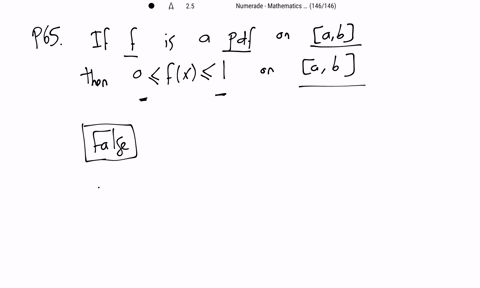 2.5 Numerade - Mathematics ... (146/146)
P65. If f is a pdf on [a,b]
then 0 ≤ f(x) ≤ 1 on [a, b]
False